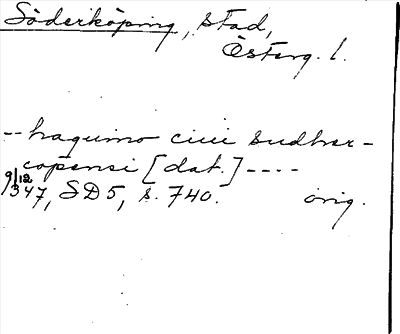 Söderköping, stad,
Österg. l.
-- haquino ciui sudhær-
copensi [dat.] ----
9/12 1347, SD 5, s. 740. orig.